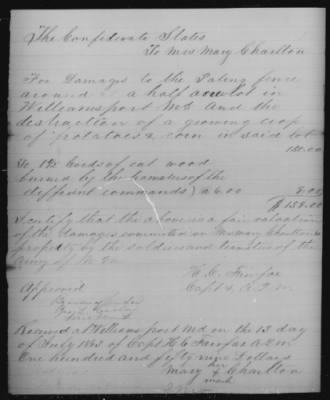 The Confederate States
To Mrs Mary Charlton
For Damages to the Paling fence
around a half acre lot in
Williamsport Md and the
destruction of a growing crop
of potatoes & corn in said lot
150.00
To 1½ Cords of cut wood
burned by the teamsters of the
different commands) a 6.00 9.00
$159.00
I certify that the above is a fair valuation
of the damages committed on Mrs Mary Charlton's
property by the soldiers and teamsters of the
Army of N. Va
H. C. Fairfax
Capt & A. Q. M.
Approved
Received at Williamsport Md on the 13 day
of July 1863 of Capt H. C. Fairfax A Q M
One hundred and fifty nine Dollars
Mary her x mark Charlton